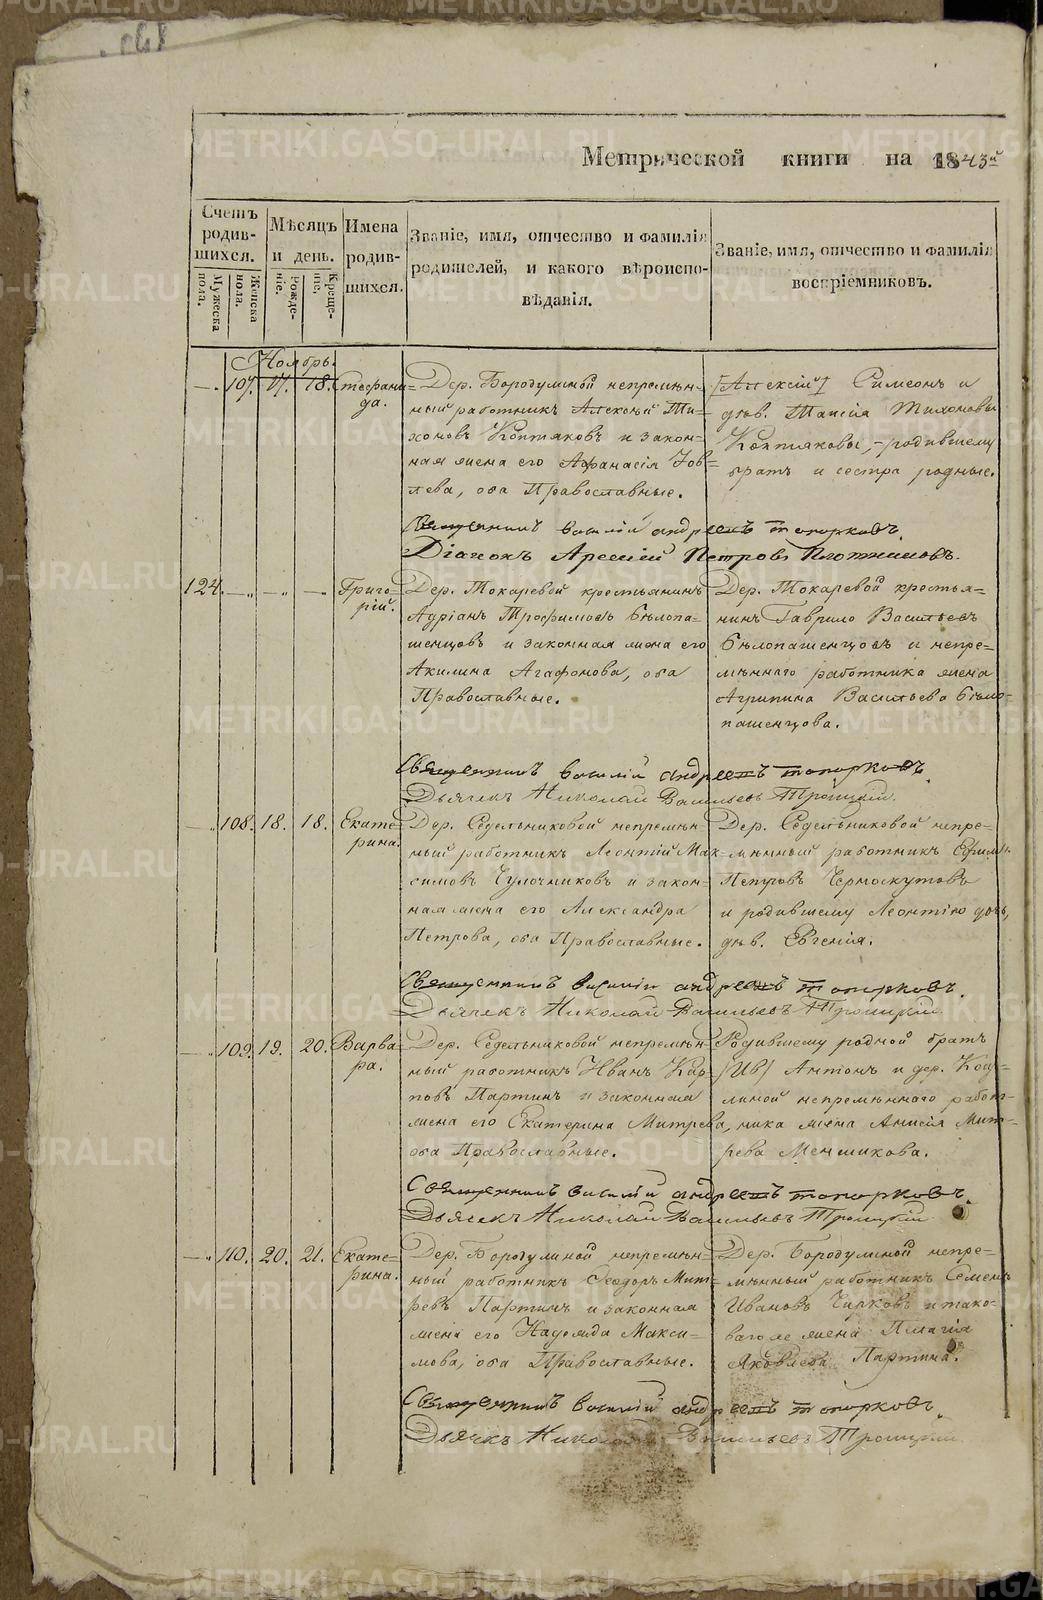 Метрической книги на 1843й
Счетъ родившихся.
Мужеска пола.
Женска пола.
Мѣсяцъ и день.
Рожденіе.
Крещеніе.
Имена родившихся.
Званіе, имя, отчество и фамилія
родителей, и какого вѣроиспо-
вѣданія.
Званіе, имя, отчество и фамилія
воспріемниковъ.
Ноябрь.
107. 17. 18. Стефани-
да.
Дер. Бородулиной непремѣн-
ный работникъ Алексѣй Ти-
хоновъ Коптяковъ и закон-
ная жена его Афанасія Іов-
лева, оба Православные.
[Алексій] Симеонъ и
дѣв. Таисія Тихоновы
Коптяковы, - родившему
братъ и сестра родные.
Священникъ Василій Андреевъ Топорковъ.
Діаконъ Арсеній Петровъ Плотниковъ.
124. — „ — „ — Григо-
рій.
Дер. Токаревой крестьянинъ
Адріанъ Трофимовъ Бѣлопа-
шенцовъ и законная жена его
Акилина Агафонова, оба
Православные.
Дер. Токаревой крестья-
нинъ Гаврило Васильевъ
Бѣлопашенцовъ и непре-
мѣннаго работника жена
Агрипина Васильева Бѣло-
пашенцова.
Священникъ Василій Андреевъ Топорковъ.
Дьячекъ Николай Васильевъ Троицкій.
— „ 108. 18. 18. Екате-
рина.
Дер. Седельниковой непремѣн-
ный работникъ Леонтій Мак-
симовъ Чулочниковъ и закон-
ная жена его Александра
Петрова, оба Православные.
Дер. Седельниковой непре-
мѣнный работникъ Ефимъ
Петровъ Черноскутовъ
и родившему Леонтію дочь,
дѣв. Евгенія.
Священникъ Василій Андреевъ Топорковъ.
Дьячекъ Николай Васильевъ Троицкій.
— „ 109. 19. 20. Варва-
ра.
Дер. Седельниковой непремѣн-
ный работникъ Иванъ Кар-
повъ Партинъ и законная
жена его Екатерина Митрева,
оба Православные.
Родившему родной братъ
[Ив] Антонъ и дер.
линой непремѣннаго работ-
ника жена Анисія Мит-
рева Меншикова.
Священникъ Василій Андреевъ Топорковъ.
Дьячекъ Николай Васильевъ Троицкій.
— „ 110. 20. 21. Екате-
рина.
Дер. Бородулиной непремѣн-
ный работникъ Ѳеодоръ Мит-
ревъ Партинъ и законная
жена его Надежда Макси-
мова, оба Православные.
Дер. Бородулиной непре-
мѣнный работникъ Семенъ
Ивановъ Чирковъ и тако-
ваго же жена Пелагія
Яковлева Партина.
Священникъ Василій Андреевъ Топорковъ.
Дьячекъ Николай Васильевъ Троицкій.
METRIKI.GASO-URAL.RU